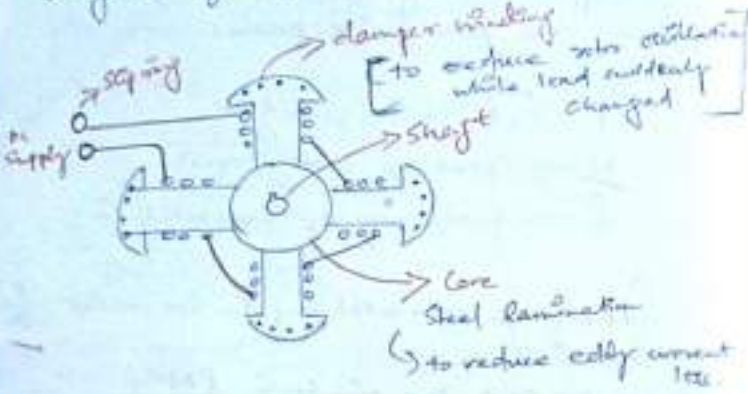 damper winding
[to reduce rotor oscillation
while load suddenly
changed]
slip ring
supply
Shaft
Core
Steel lamination
↳ to reduce eddy current
loss.